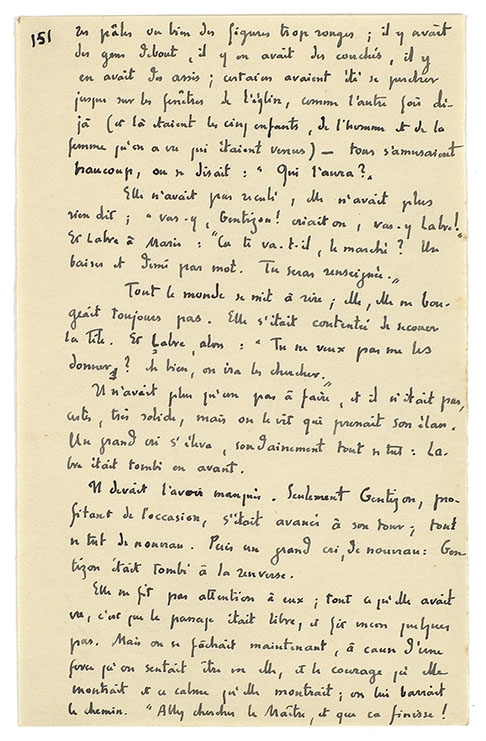 151
des pâles ou bien des figures trop rouges ; il y avait
des gens debout, il y en avait des couchés, il y
en avait des assis ; certains avaient été se percher
jusque sur les fenêtres de l'église, comme l'autre fois dé-
jà (et là étaient les cinq enfants, de l'homme et de la
femme qu'on a vu qui étaient venus) — tous s'amusaient
beaucoup, on se disait : " Qui l'aura ? "
Elle n'avait pas reculé, elle n'avait plus
rien dit ; " vas-y, Gentizon ! criait on, vas-y Labre ! "
Et Labre à Marie : " Ça te va-t-il, le marché ? Un
baiser et demi par mot. Tu seras renseignée. "
Tout le monde se mit à rire ; elle, elle ne bou-
geait toujours pas. Elle s'était contentée de secouer
la tête. Et Labre, alon : " Tu ne veux pas me les
donner ? eh bien, on ira les chercher. "
Il n'avait plus qu'un pas à faire, et il n'était pas,
certes, très solide, mais on le vit qui prenait son élan.
Un grand cri s'éleva, soudainement tout se tut : La-
bre était tombé en avant.
Il devait l'avoir manquée. Seulement Gentizon, pro-
fitant de l'occasion, s'était avancé à son tour ; tout
se tut de nouveau. Puis un grand cri, de nouveau : Gen-
tizon était tombé à la renverse.
Elle ne fit pas attention à eux ; tout ce qu'elle avait
vu, c'est que le passage était libre, et fit encore quelques
pas. Mais on se fâchait maintenant, à cause d'une
force qu'on sentait être en elle, et le courage qu'elle
montrait et ce calme qu'elle montrait ; on lui barrait
le chemin. " Allez chercher le Maître, et que ça finisse !